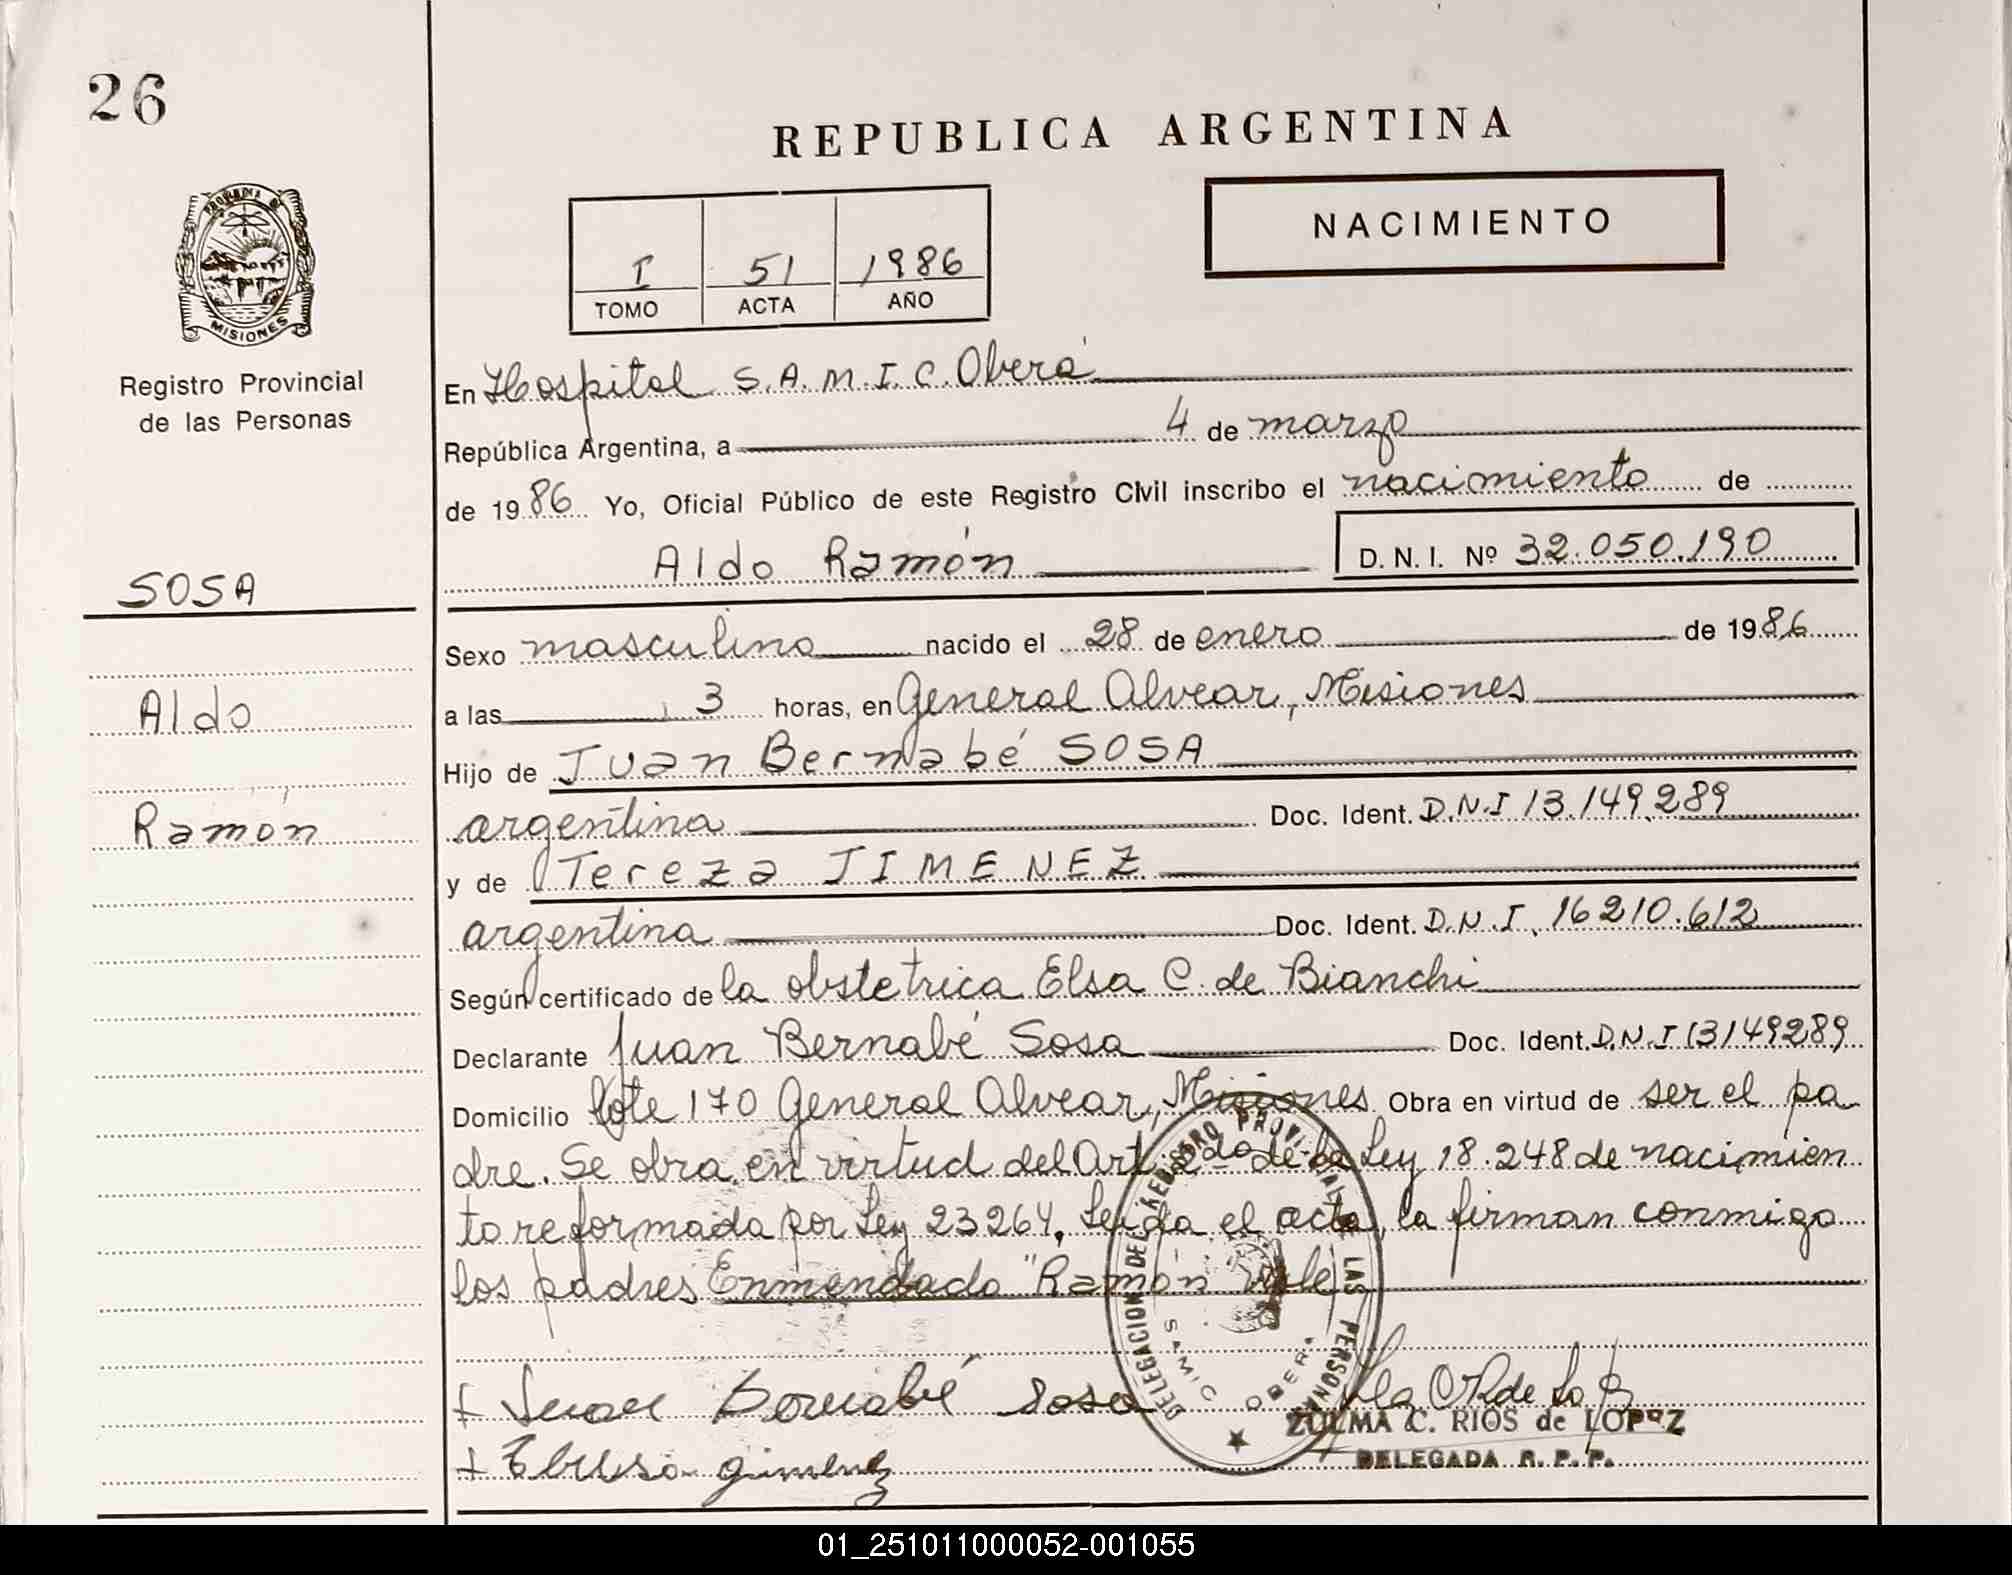 26
REPUBLICA ARGENTINA
NACIMIENTO
I 51 1986
TOMO ACTA AÑO
PROVINCIA DE
MISIONES
Registro Provincial
de las Personas
SOSA
Aldo
Ramón
En Hospital S.A.M.I.C. Oberá
República Argentina, a 4 de marzo
de 1986 Yo, Oficial Público de este Registro Civil inscribo el nacimiento de
Aldo Ramón D. N. I. Nº 32.050.190
Sexo masculino nacido el 28 de enero de 1986
a las 3 horas, en General Alvear, Misiones
Hijo de Juan Bernabé SOSA
argentina Doc. Ident. D.N.I 13.149.289
y de Tereza JIMENEZ
argentina Doc. Ident. D.N.I. 16210.612
Según certificado de la obstetrica Elsa C. de Bianchi
Declarante Juan Bernabé Sosa Doc. Ident. D.N.I 13149289
Domicilio lote 170 General Alvear, Misiones Obra en virtud de ser el pa
dre. Se obra en virtud del Art. 2do de la Ley 18.248 de nacimien
to reformada por Ley 23264. Leida el acta, la firman conmigo
los padres Enmendado "Ramón" Vale
DELEGACION DEL REGISTRO PROVINCIAL DE LAS PERSONAS
SAMIC OBERA
+ Juan Bernabé Sosa
ZULMA C. RIOS de LOPEZ
DELEGADA R. P. P.
+ gimenez
01_251011000052-001055